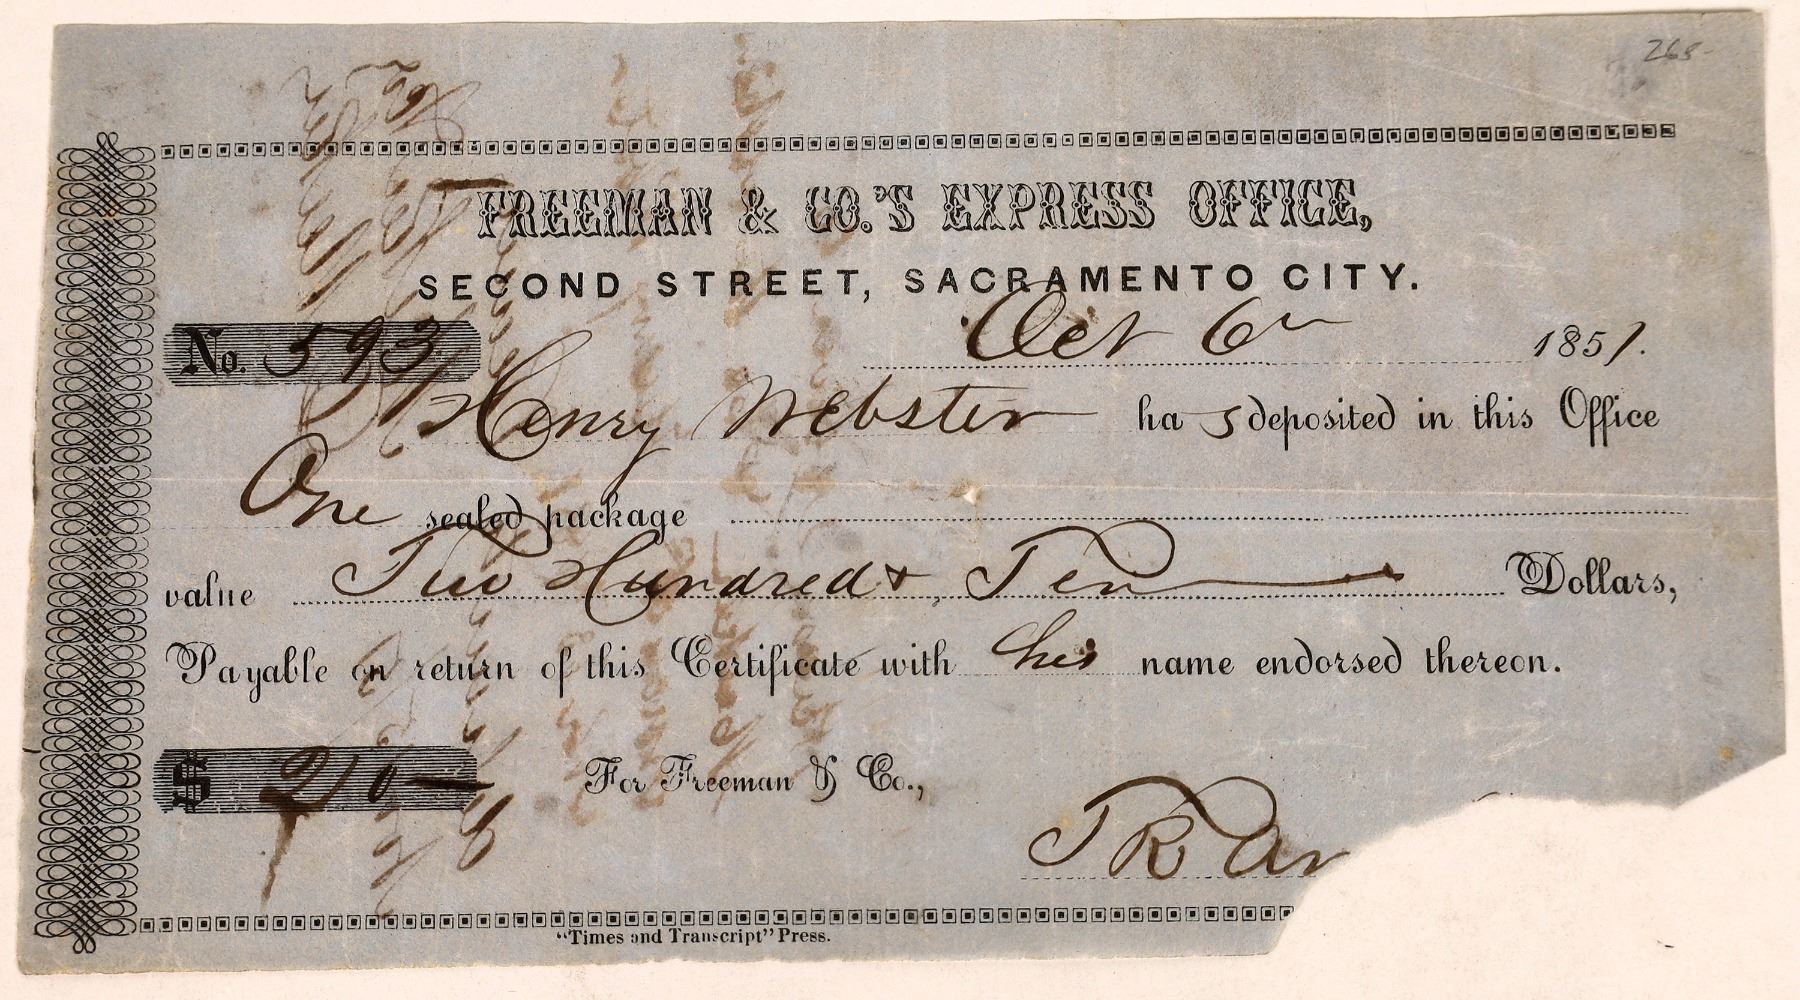 268-
FREEMAN & CO.'S EXPRESS OFFICE,
SECOND STREET, SACRAMENTO CITY.
No. 593 Oct 6th 1851.
Henry Webster has deposited in this Office
One sealed package
value Two Hundred & Ten Dollars,
Payable on return of this Certificate with his name endorsed thereon.
$ 210— For Freeman & Co.,
J R Ar
"Times and Transcript" Press.